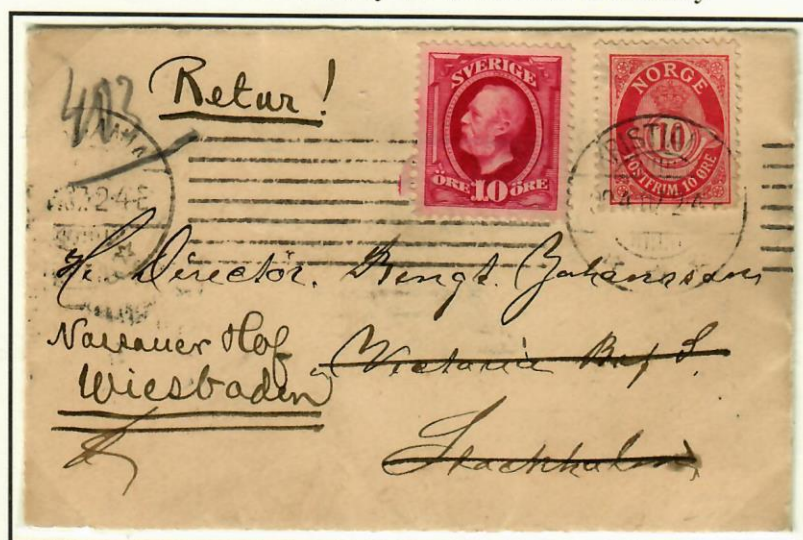 403
Retur!
SVERIGE
ÖRE 10 ÖRE
NORGE
10
POSTFRIM. 10 ØRE
KRISTI
2-4-E
H. Director. Bengt. Johansson
Nassauer Hof
Wiesbaden
Victoria
Stockholm